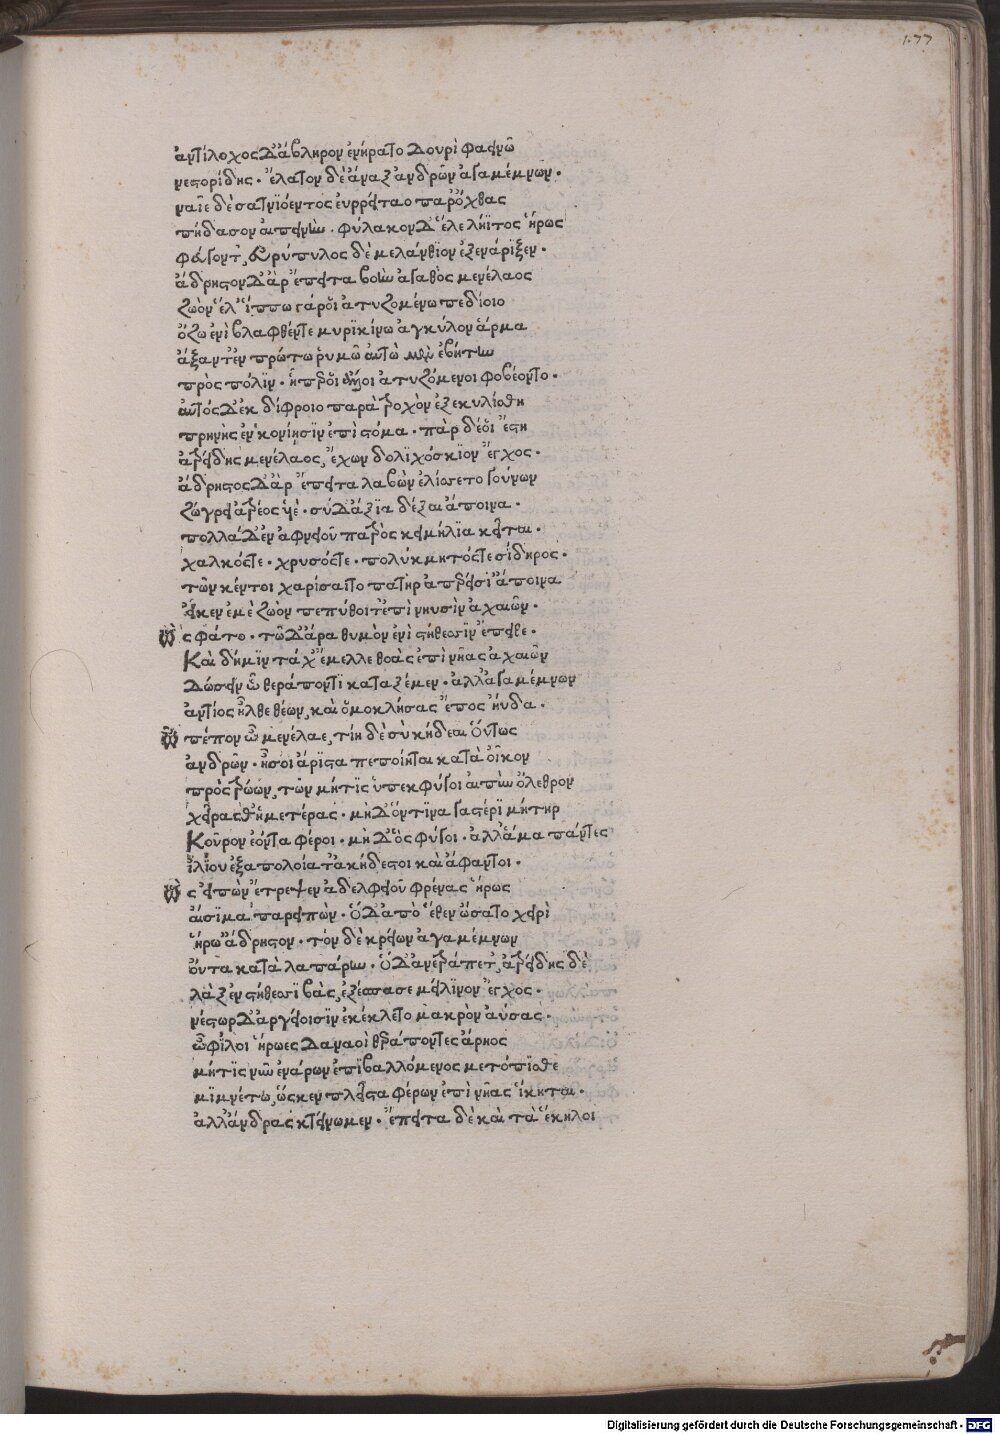 177
ἀντίλοχος δ' ἄβληρον ἐνήρατο δουρὶ φαεινῶ
νεστορίδης· ἔλατον δὲ ἄναξ ἀνδρῶν ἀγαμέμνων·
ναῖε δὲ σατνιόεντος ἐυρρείταο παρ' ὄχθας
πήδασον αἰπεινὴν· φύλακον δ' ἕλε λήϊτος ἥρως
φεύγοντ', εὐρύπυλος δὲ μελάνθιον ἐξενάριξεν·
ἄδρηστον δ' ἂρ' ἔπειτα βοὴν ἀγαθὸς μενέλαος
ζωὸν ἕλ' ἵππω γάρ οἱ ἀτυζομένω πεδίοιο
ὄζω ἐνὶ βλαφθέντε μυρικίνω ἀγκύλον ἅρμα
ἄξαντ' ἐν πρώτω ῥυμῶ αὐτὼ μὲν ἐβήτην
πρὸς πόλιν· ᾗπερ οἱ ἄλλοι ἀτυζόμενοι φοβέοντο·
αὐτὸς δ' ἐκ δίφροιο παρὰ τροχὸν ἐξεκυλίσθη
πρηνὴς ἐν κονίησιν ἐπὶ στόμα· πὰρ δέ οἱ ἔστη
ἀτρείδης μενέλαος, ἔχων δολιχόσκιον ἔγχος·
ἄδρηστος δ' ἂρ' ἔπειτα λαβὼν ἐλίσσετο γούνων
ζώγρει ἀτρέος υἱὲ· σὺ δ' ἄξια δέξαι ἄποινα·
πολλὰ δ' ἐν ἀφνειοῦ πατρὸς κειμήλια κεῖται·
χαλκός τε· χρυσός τε· πολύκμητός τε σίδηρος·
τῶν κέν τοι χαρίσαιτο πατὴρ ἀπερείσι' ἄποινα
εἴ κεν ἐμὲ ζωὸν πεπύθοιτ' ἐπὶ νηυσὶν ἀχαιῶν·
ὣς φάτο· τῶ δ' ἄρα θυμὸν ἐνὶ στήθεσσιν ἔπειθε·
Καὶ δή μιν τάχ' ἔμελλε θοὰς ἐπὶ νῆας ἀχαιῶν
δώσειν ὧ θεράποντι καταξέμεν· ἀλλ' ἀγαμέμνων
ἀντίος ἦλθε θέων, καὶ ὁμοκλήσας ἔπος ηὔδα·
ὦ πέπον ὦ μενέλαε, τίη δὲ σὺ κήδεαι οὕτως
ἀνδρῶν· ἦ σοὶ ἄριστα πεποίηται κατὰ οἶκον
πρὸς τρώων, τῶν μήτις ὑπεκφύγοι αἰπὺν ὄλεθρον
χεῖράς θ' ἡμετέρας· μὴ δ' ὅντινα γαστέρι μήτηρ
Κοῦρον ἐόντα φέροι· μὴ δ' ὃς φύγοι· ἀλλ' ἅμα πάντες
ἰλίου ἐξαπολοίατ' ἀκήδεστοι καὶ ἄφαντοι·
ὣς εἰπὼν ἔτρεψεν ἀδελφειοῦ φρένας ἥρως
αἴσιμα παρειπὼν· ὁ δ' ἀπὸ ἕθεν ὤσατο χειρὶ
ἥρω' ἄδρηστον· τὸν δὲ κρείων ἀγαμέμνων
οὖτα κατὰ λαπάρην· ὁ δ' ἀνετράπετ', ἀτρείδης δὲ
λὰξ ἐν στήθεσσι βὰς, ἐξέσπασε μείλινον ἔγχος·
νέστωρ δ' ἀργείοισιν ἐκέκλετο μακρὸν ἀύσας·
ὦ φίλοι ἥρωες δαναοὶ θεράποντες ἄρηος
μήτις νῦν ἐνάρων ἐπιβαλλόμενος μετόπισθε
μιμνέτω, ὥς κεν πλεῖστα φέρων ἐπὶ νῆας ἵκηται·
ἀλλ' ἄνδρας κτείνωμεν· ἔπειτα δὲ καὶ τὰ ἕκηλοι
Digitalisierung gefördert durch die Deutsche Forschungsgemeinschaft - DFG